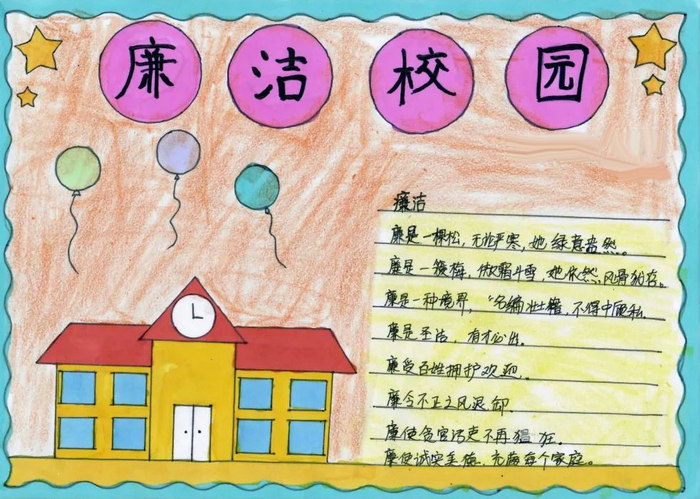 廉洁校园
廉洁
廉是一棵松，无论严寒，她绿意盎然。
廉是一簇梅，傲霜斗雪，她依然风骨犹存。
廉是一种境界，“名编壮籍，不得中顾私
廉是圣洁，有才必出。
廉受百姓拥护欢迎。
廉令不正之风退却
廉使贪官污吏不再猖狂。
廉使诚实美梅，充满每个家庭。